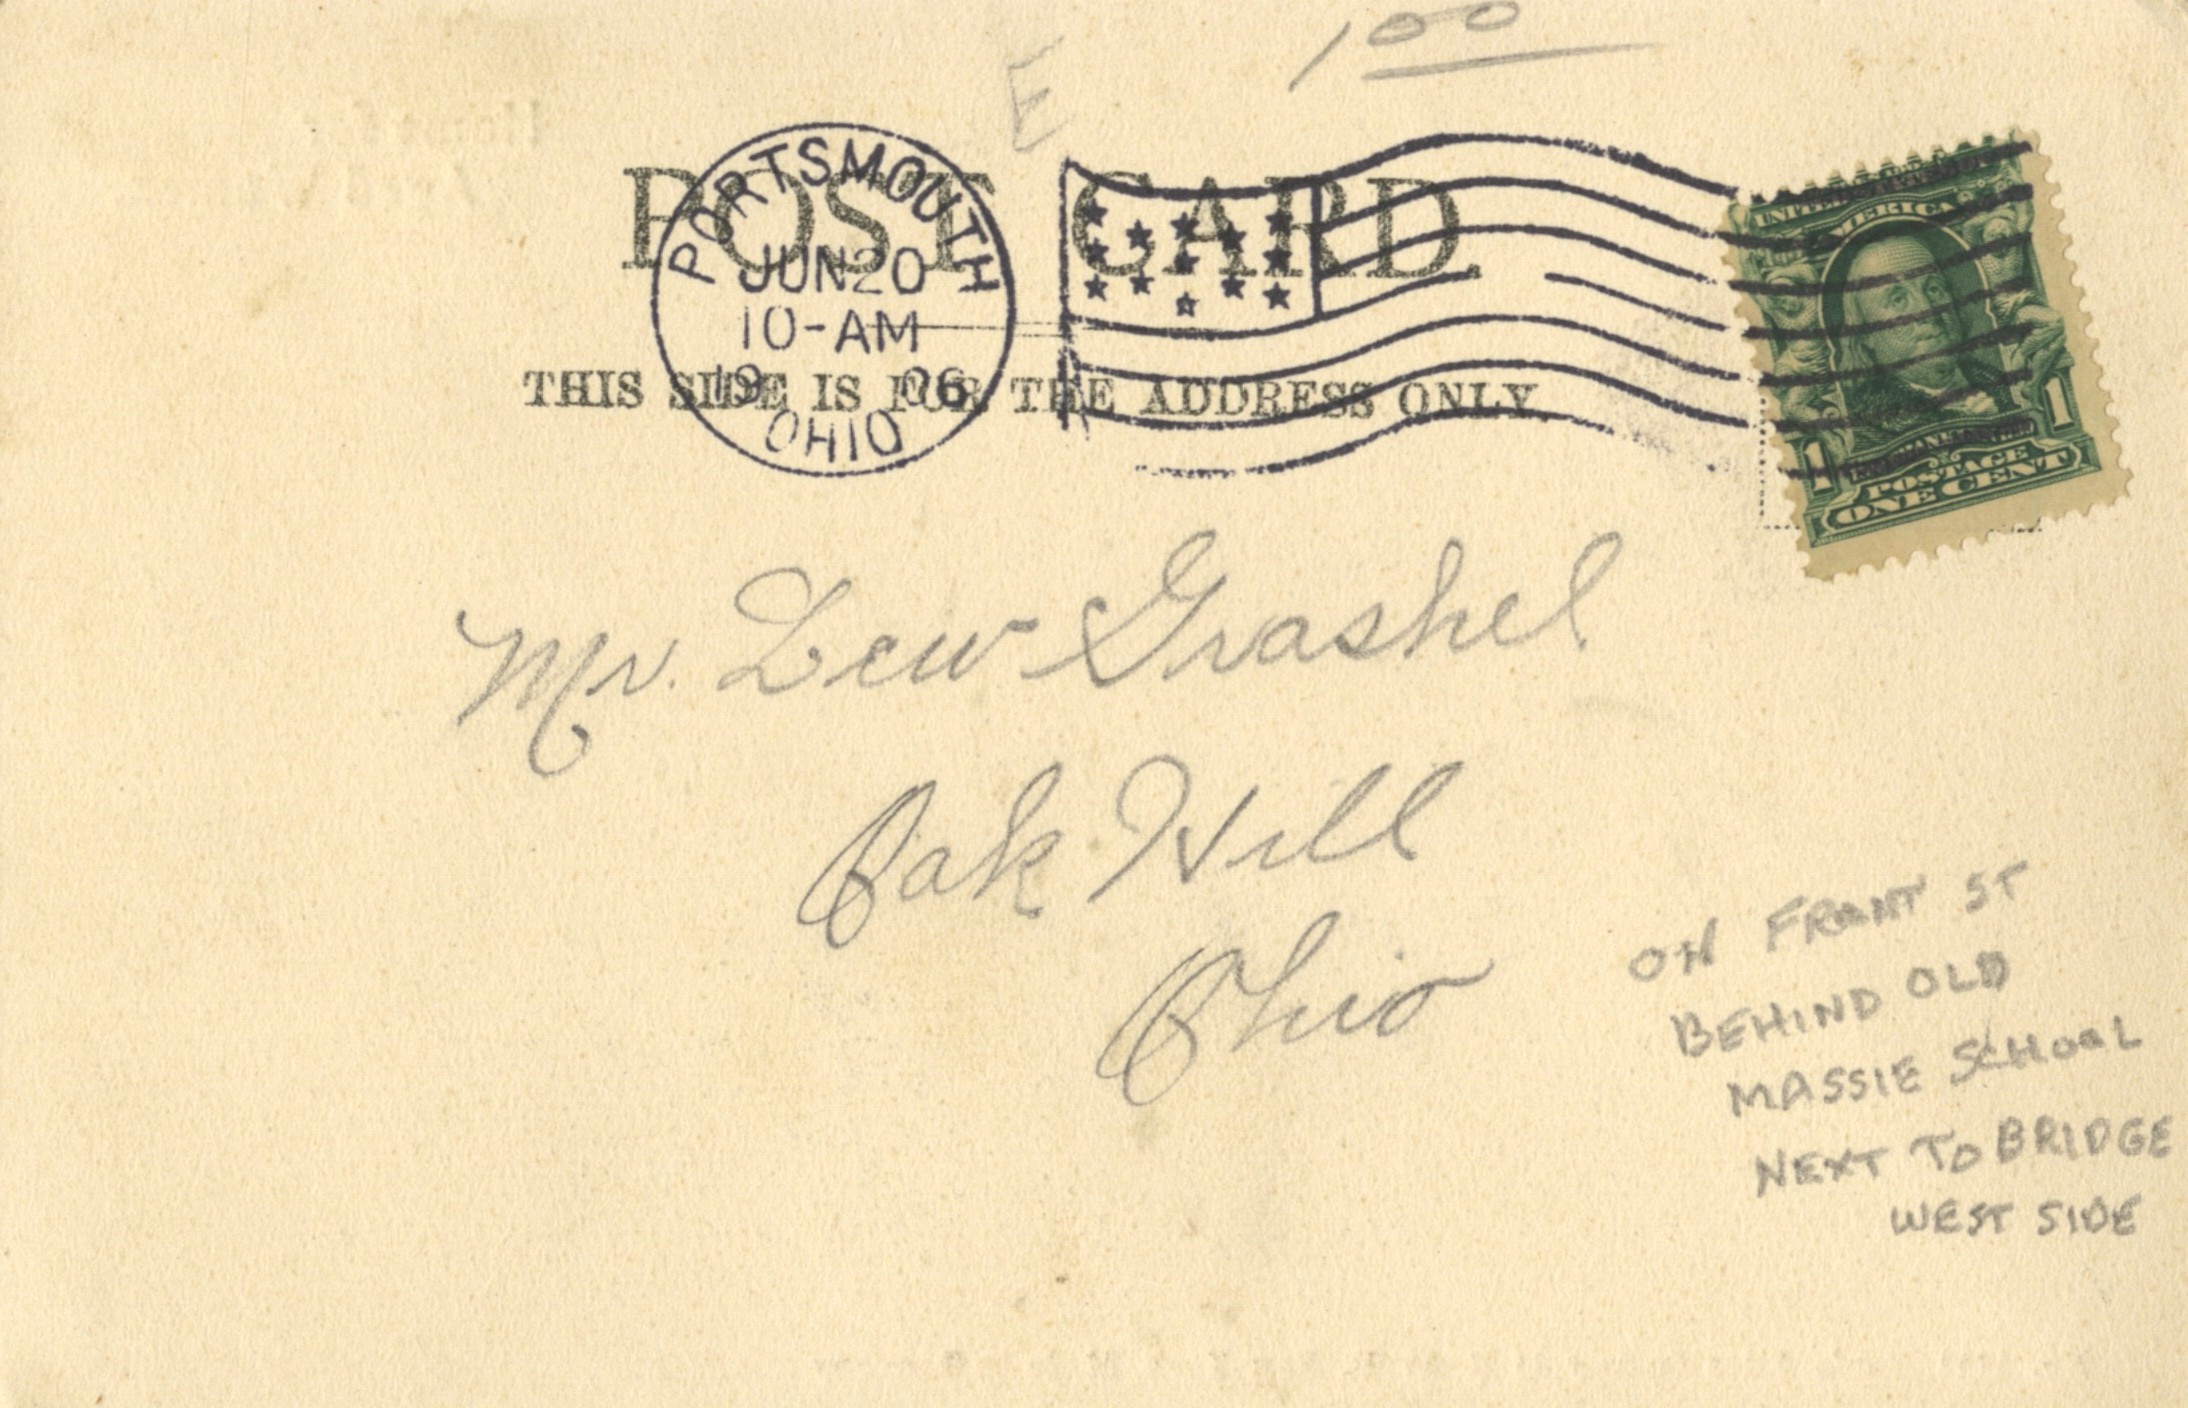 1 00
E
POST CARD.
PORTSMOUTH
JUN 20
10-AM
19 06
OHIO
THIS SIDE IS FOR THE ADDRESS ONLY
UNITED STATES OF AMERICA
1 1
POSTAGE
ONE CENT
Mr. Lew Grashel
Oak Hill
Ohio
ON FRONT ST
BEHIND OLD
MASSIE SCHOOL
NEXT TO BRIDGE
WEST SIDE